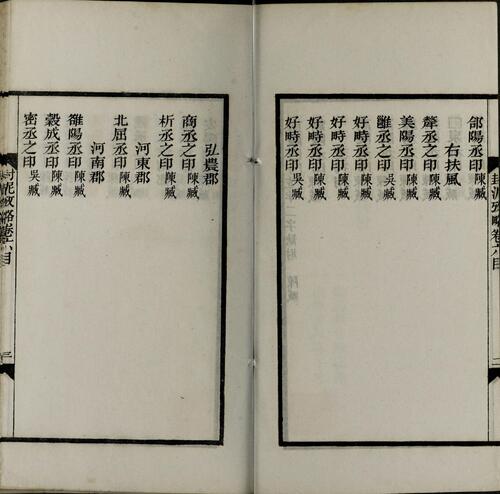 郃陽丞印陳臧
右扶風
斄丞之印陳臧
美陽丞印陳臧
雝丞之印吳臧
好畤丞印陳臧
好畤丞印陳臧
好畤丞印陳臧
好畤丞印吳臧
封泥攷略卷六目
二
弘農郡
商丞之印陳臧
析丞之印陳臧
河東郡
北屈丞印陳臧
河南郡
雒陽丞印陳臧
穀成丞印陳臧
密丞之印吳臧
封泥攷略卷六目
三